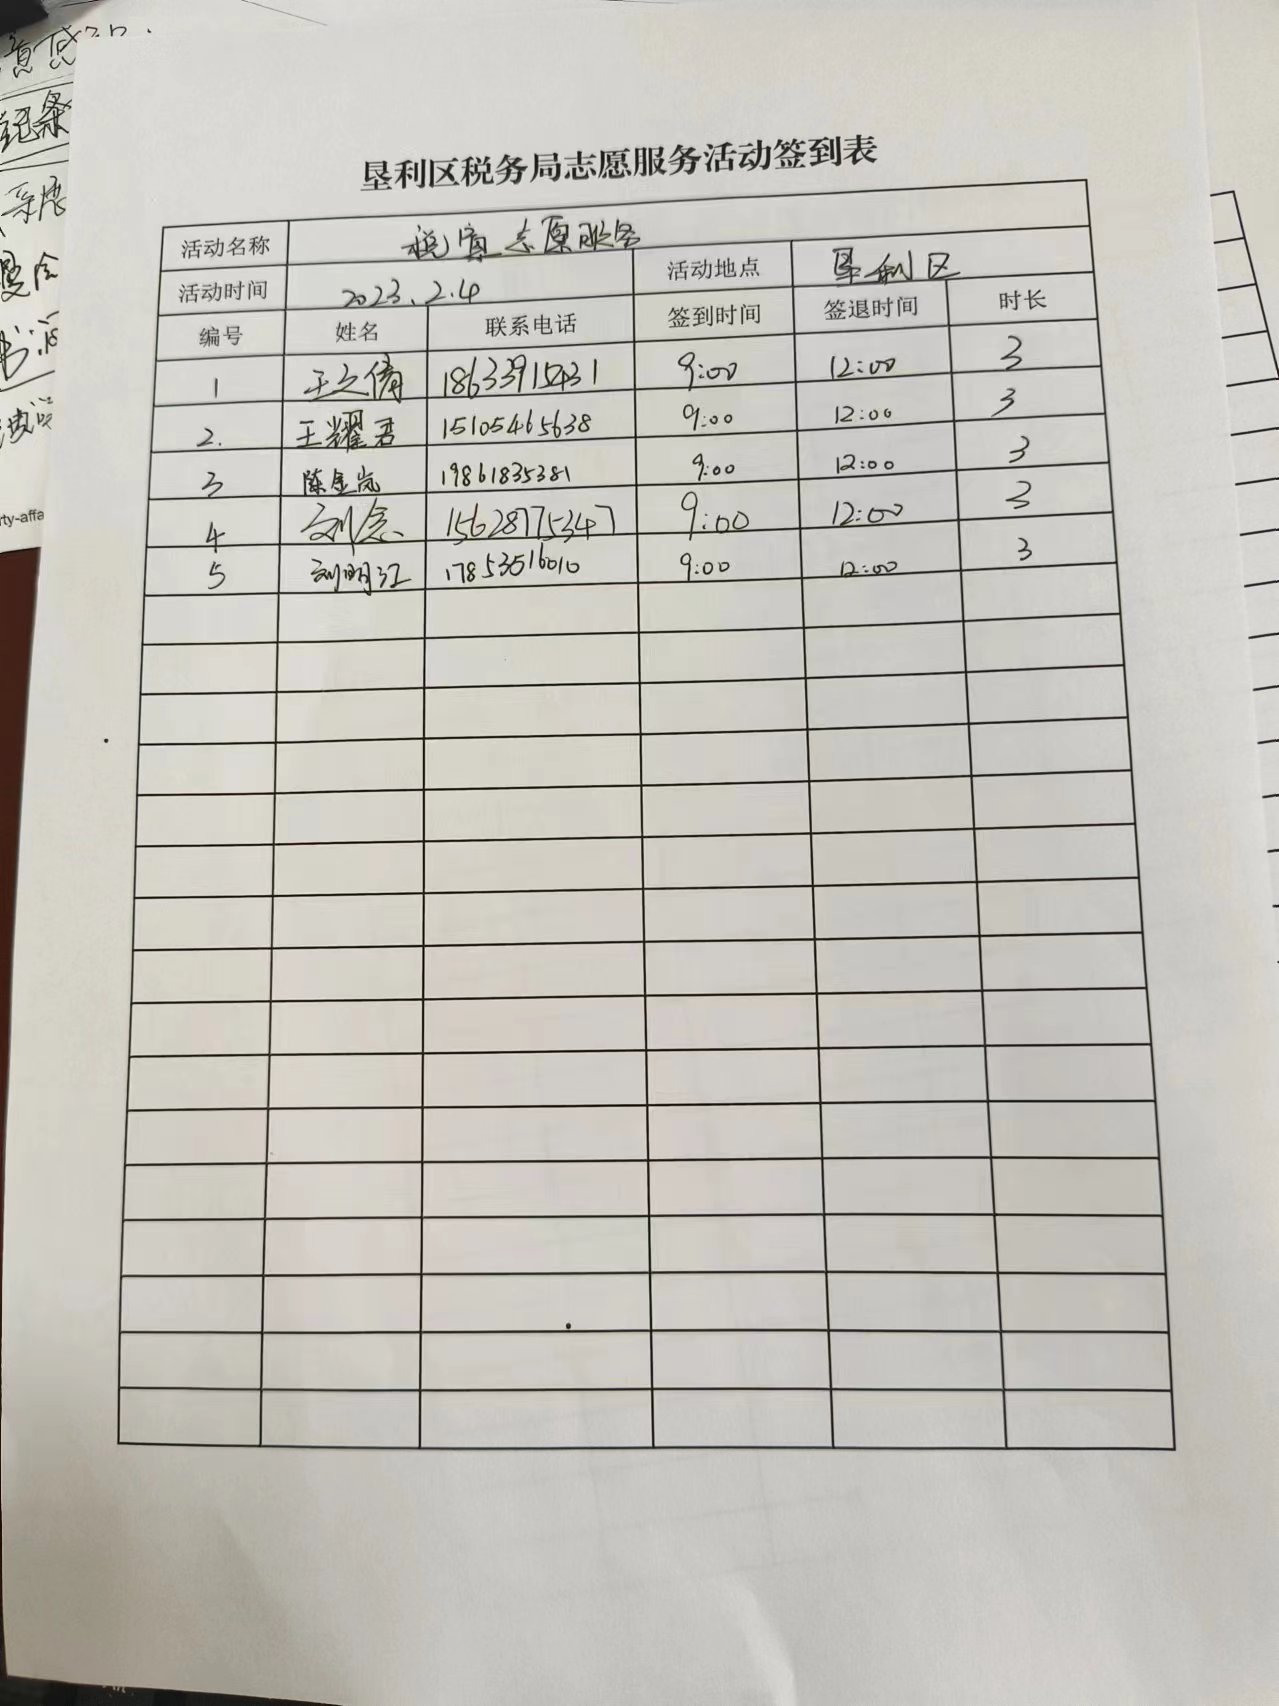 垦利区税务局志愿服务活动签到表
活动名称 税宣志愿服务
活动时间 2023.2.4 活动地点 垦利区
编号 姓名 联系电话 签到时间 签退时间 时长
1 王之倩 18633915431 9:00 12:00 3
2. 王耀君 15105465638 9:00 12:00 3
3 陈金岚 19861835381 9:00 12:00 3
4 刘念 15628775347 9:00 12:00 3
5 刘明江 17853516010 9:00 12:00 3
rty-affa